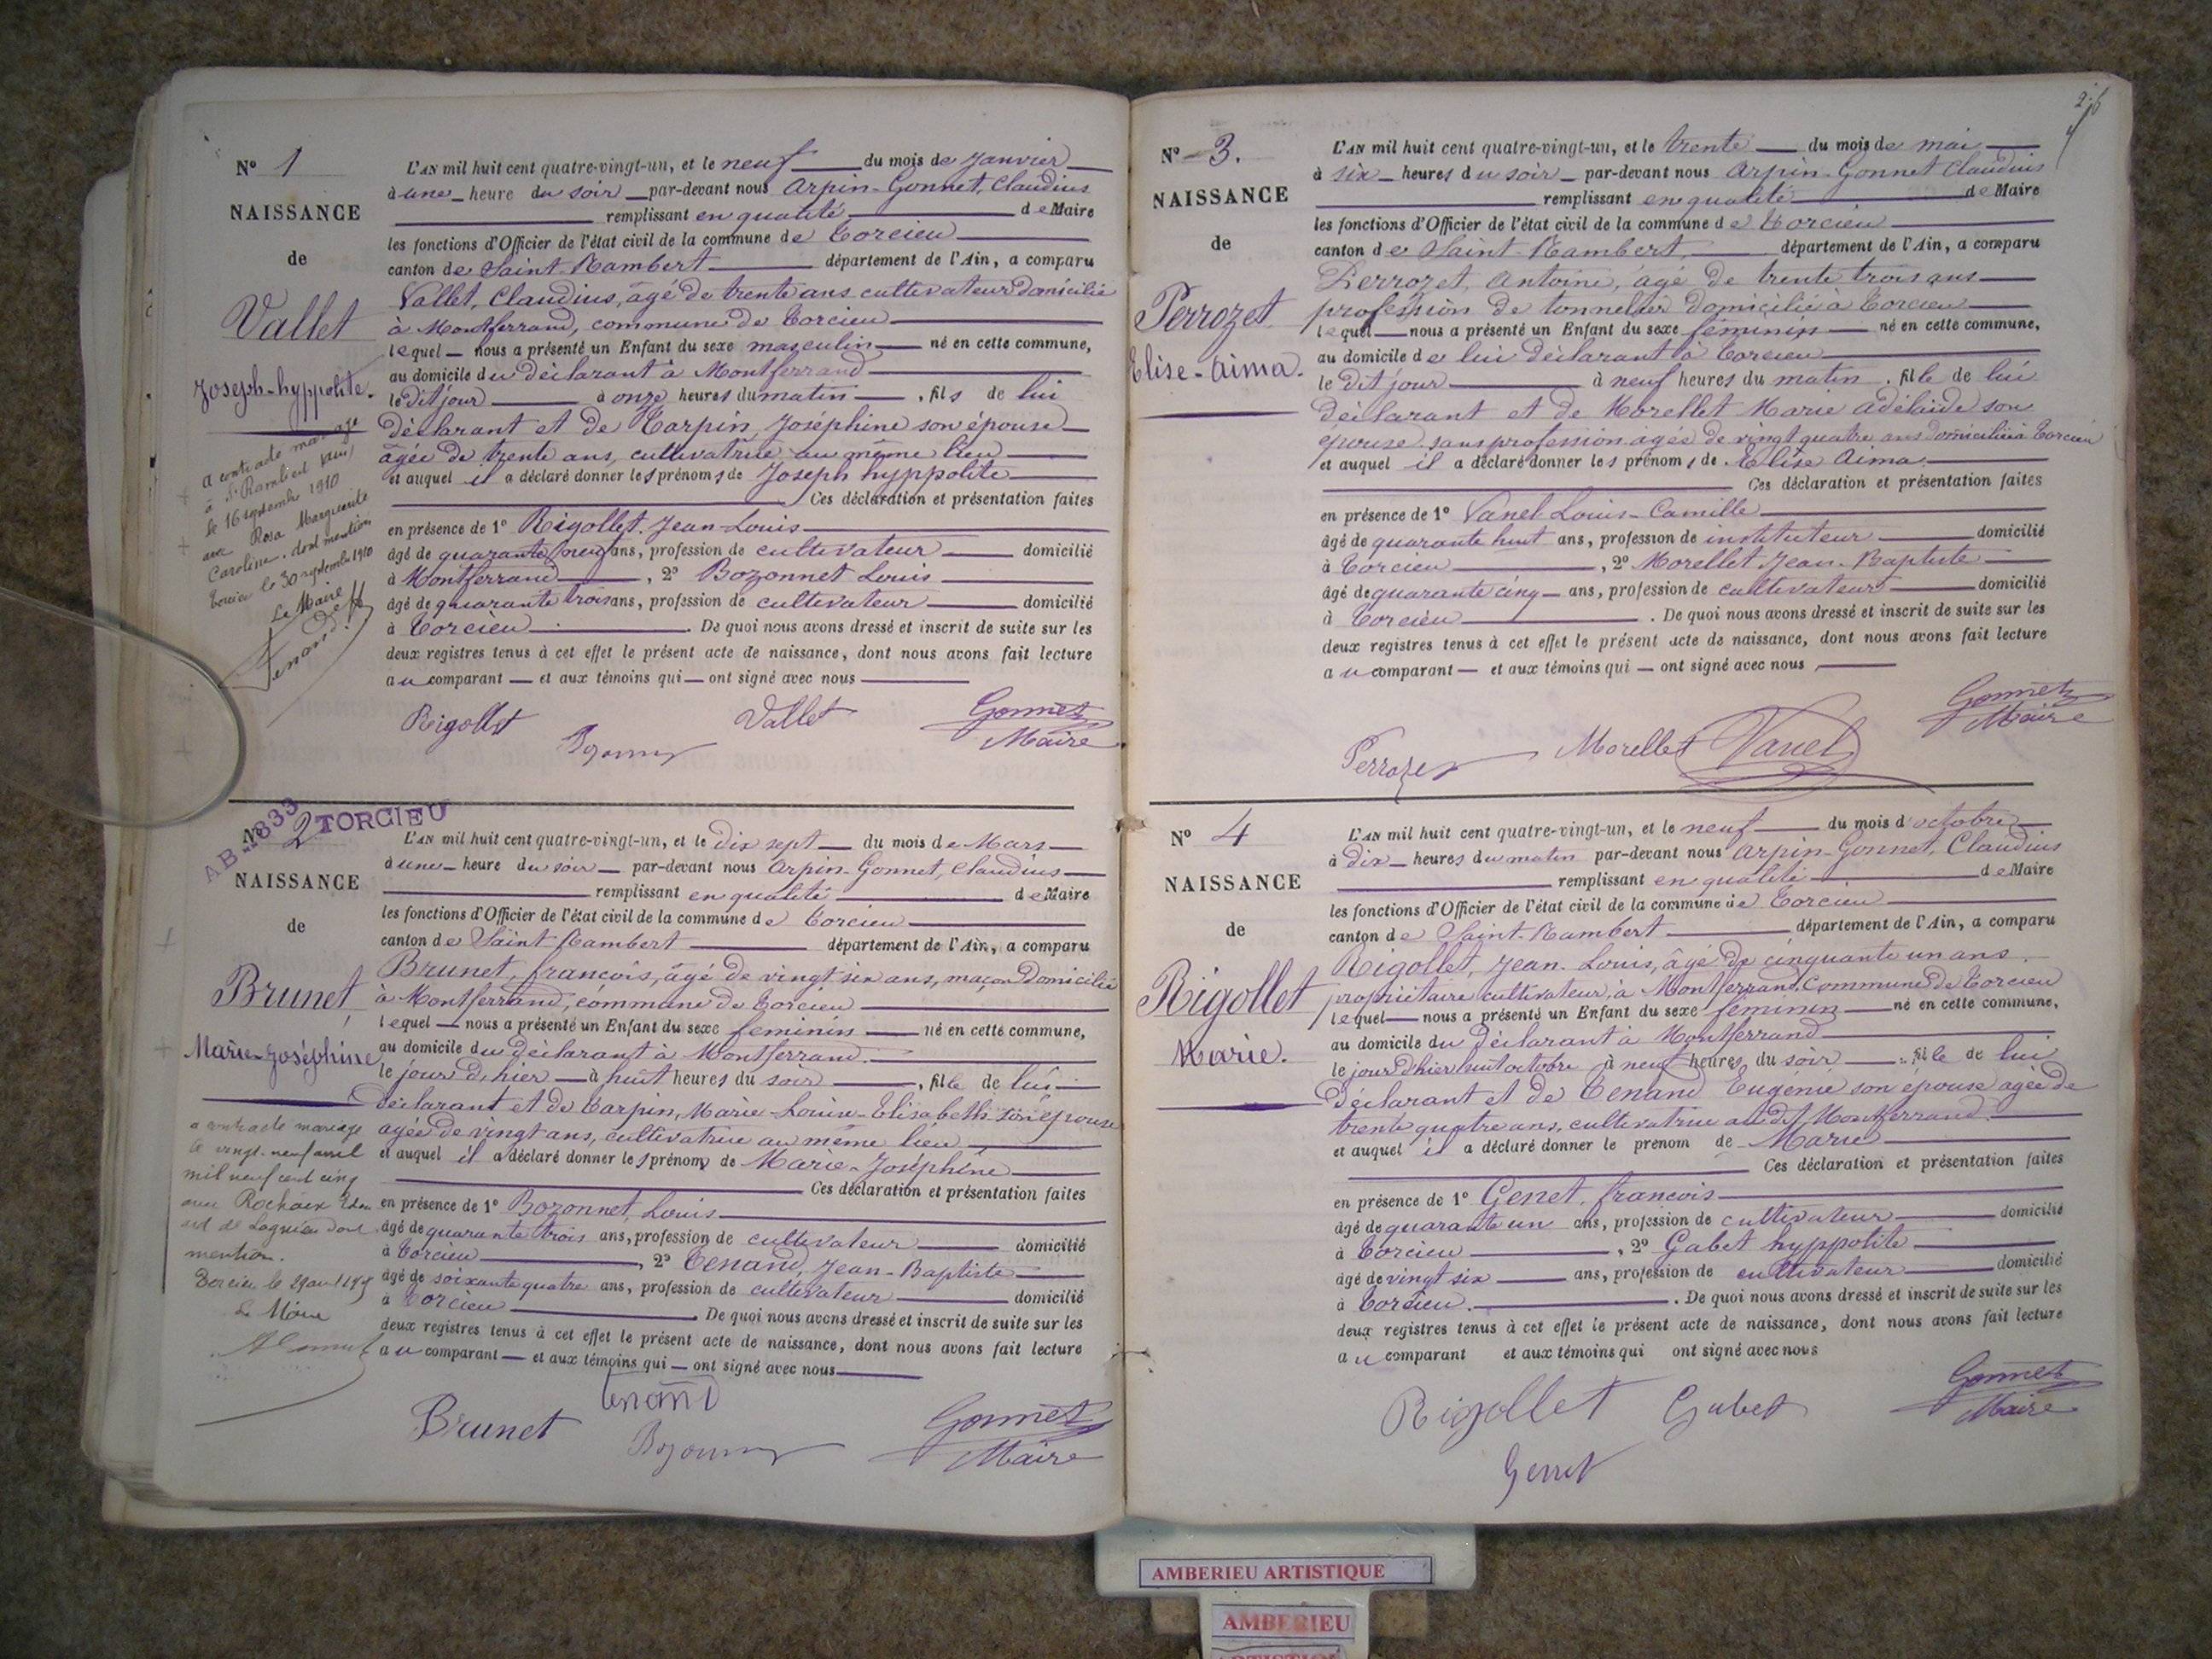 N° 1
NAISSANCE
de
Vallet
Joseph-hyppolite.
a contracté mariage
à St Rambert
le 16 septembre 1910
avec Rosa Marguerite
Caroline. dont mention
Torcieu le 30 septembre 1910
Le Maire
Tenand
L'AN mil huit cent quatre-vingt-un, et le neuf du mois de Janvier
à une heure du soir par-devant nous Arpin-Gonnet, Claudius
remplissant en qualité de Maire
les fonctions d'Officier de l'état civil de la commune de Torcieu
canton de Saint-Rambert département de l'Ain, a comparu
Vallet, Claudius, âgé de trente ans cultivateur domicilié
à Montferrand, commune de Torcieu
lequel nous a présenté un Enfant du sexe masculin né en cette commune,
au domicile du déclarant à Montferrand
le dit jour à onze heures du matin, fils de lui
déclarant et de Tarpin, Joséphine son épouse
âgée de trente ans, cultivatrice au même lieu
et auquel il a déclaré donner les prénoms de Joseph hyppolite
Ces déclaration et présentation faites
en présence de 1° Rigollet, Jean-Louis
âgé de quarante neuf ans, profession de cultivateur domicilié
à Montferrand, 2° Bozonnet Louis
âgé de quarante trois ans, profession de cultivateur domicilié
à Torcieu. De quoi nous avons dressé et inscrit de suite sur les
deux registres tenus à cet effet le présent acte de naissance, dont nous avons fait lecture
au comparant et aux témoins qui ont signé avec nous
Rigollet Bozonnet Vallet Gonnet
Maire
AB 1833 TORCIEU
N° 2
NAISSANCE
de
Brunet,
Marie-Joséphine
a contracté mariage
le vingt-neuf avril
mil neuf cent cinq
avec Rochaix
de Lagnieu dont
mention.
Torcieu le 29 avril 1905
Le Maire
L'AN mil huit cent quatre-vingt-un, et le dix sept du mois de Mars
à une heure du soir par-devant nous Arpin-Gonnet, Claudius
remplissant en qualité de Maire
les fonctions d'Officier de l'état civil de la commune de Torcieu
canton de Saint-Rambert département de l'Ain, a comparu
Brunet, françois, âgé de vingt six ans, maçon domicilié
à Montferrand, commune de Torcieu
lequel nous a présenté un Enfant du sexe feminin né en cette commune,
au domicile du déclarant à Montferrand.
le jour d'hier à huit heures du soir, fille de lui
déclarant et de Tarpin, Marie-Louise-Elisabeth son épouse
agée de vingt ans, cultivatrice au même lieu
et auquel il a déclaré donner les prénoms de Marie-Joséphine
Ces déclaration et présentation faites
en présence de 1° Bozonnet, Louis
âgé de quarante trois ans, profession de cultivateur domicilié
à Torcieu, 2° Tenand, Jean-Baptiste
âgé de soixante quatre ans, profession de cultivateur domicilié
à Torcieu. De quoi nous avons dressé et inscrit de suite sur les
deux registres tenus à cet effet le présent acte de naissance, dont nous avons fait lecture
au comparant et aux témoins qui ont signé avec nous
Tenand
Brunet Bozonnet Gonnet
Maire
N° 3.
NAISSANCE
de
Perrozet
Elise-aima.
L'AN mil huit cent quatre-vingt-un, et le trente du mois de mai
à six heures du soir par-devant nous Arpin-Gonnet Claudius
remplissant en qualité de Maire
les fonctions d'Officier de l'état civil de la commune de Torcieu
canton de Saint-Rambert, département de l'Ain, a comparu
Perrozet, Antoine, âgé de trente trois ans
profession de tonnelier domicilié à Torcieu
lequel nous a présenté un Enfant du sexe féminin né en cette commune,
au domicile de lui déclarant à Torcieu
le dit jour à neuf heures du matin, fille de lui
déclarant et de Morellet Marie Adélaïde son
épouse sans profession âgée de vingt quatre ans domiciliée à Torcieu
et auquel il a déclaré donner les prénoms de Elise Aima.
Ces déclaration et présentation faites
en présence de 1° Vanel Louis-Camille
âgé de quarante huit ans, profession de instituteur domicilié
à Torcieu, 2° Morellet Jean-Baptiste
âgé de quarante cinq ans, profession de cultivateur domicilié
à Torcieu. De quoi nous avons dressé et inscrit de suite sur les
deux registres tenus à cet effet le présent acte de naissance, dont nous avons fait lecture
au comparant et aux témoins qui ont signé avec nous,
Perrozet Morellet Vanel Gonnet
Maire
N° 4
NAISSANCE
de
Rigollet
Marie.
L'AN mil huit cent quatre-vingt-un, et le neuf du mois d'octobre
à dix heures du matin par-devant nous Arpin-Gonnet, Claudius
remplissant en qualité de Maire
les fonctions d'Officier de l'état civil de la commune de Torcieu
canton de Saint-Rambert département de l'Ain, a comparu
Rigollet, Jean-Louis, âgé de cinquante un ans.
propriétaire cultivateur, à Montferrand, Commune de Torcieu
lequel nous a présenté un Enfant du sexe féminin né en cette commune,
au domicile du déclarant à Montferrand
le jour d'hier huit octobre à neuf heures du soir, fille de lui
déclarant et de Tenand Eugénie son épouse agée de
trente quatre ans, cultivatrice au dit Montferrand.
et auquel il a déclaré donner le prenom de Marie
Ces déclaration et présentation faites
en présence de 1° Genet, françois
âgé de quarante un ans, profession de cultivateur domicilié
à Torcieu, 2° Gabet hyppolite
âgé de vingt six ans, profession de cultivateur domicilié
à Torcieu. De quoi nous avons dressé et inscrit de suite sur les
deux registres tenus à cet effet le présent acte de naissance, dont nous avons fait lecture
au comparant et aux témoins qui ont signé avec nous
Rigollet Gabet Gonnet
Maire
Genet
AMBERIEU ARTISTIQUE
AMBERIEU
ARTISTIQUE